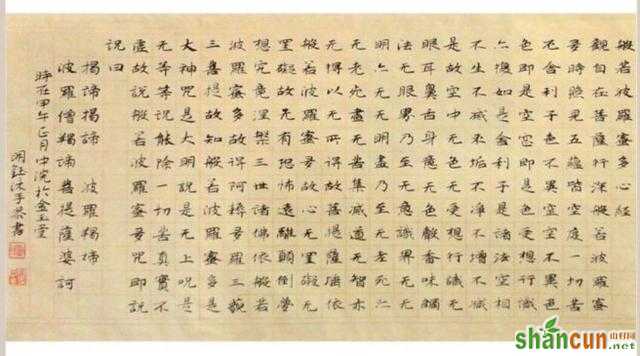 般若波羅蜜多心經
觀自在菩薩行深般若波羅蜜
多時照見五蘊皆空度一切苦
厄舍利子色不異空空不異
色色即是空空即是色受想行識
亦復如是舍利子是諸法空相
不生不滅不垢不淨不增不減
是故空中无色无受想行識无
眼耳鼻舌身意无色聲香味觸
法无眼界乃至无意識界无无
明亦无无明盡乃至无老死亦
无老死盡无苦集滅道无智亦
无得以无所得故菩提薩埵依
般若波羅蜜多故心无罣礙无
罣礙故无有恐怖遠離顛倒夢
想究竟涅槃三世諸佛依般若
波羅蜜多故得阿耨多羅三藐
三菩提故知般若波羅蜜多是
大神咒是大明咒是无上咒是
无等等咒能除一切苦真實不
虛故說般若波羅蜜多咒即說
咒曰
揭諦揭諦 波羅揭諦
波羅僧揭諦菩提薩婆訶
時在甲午正月中浣於金玉堂
恭書
shancun.net